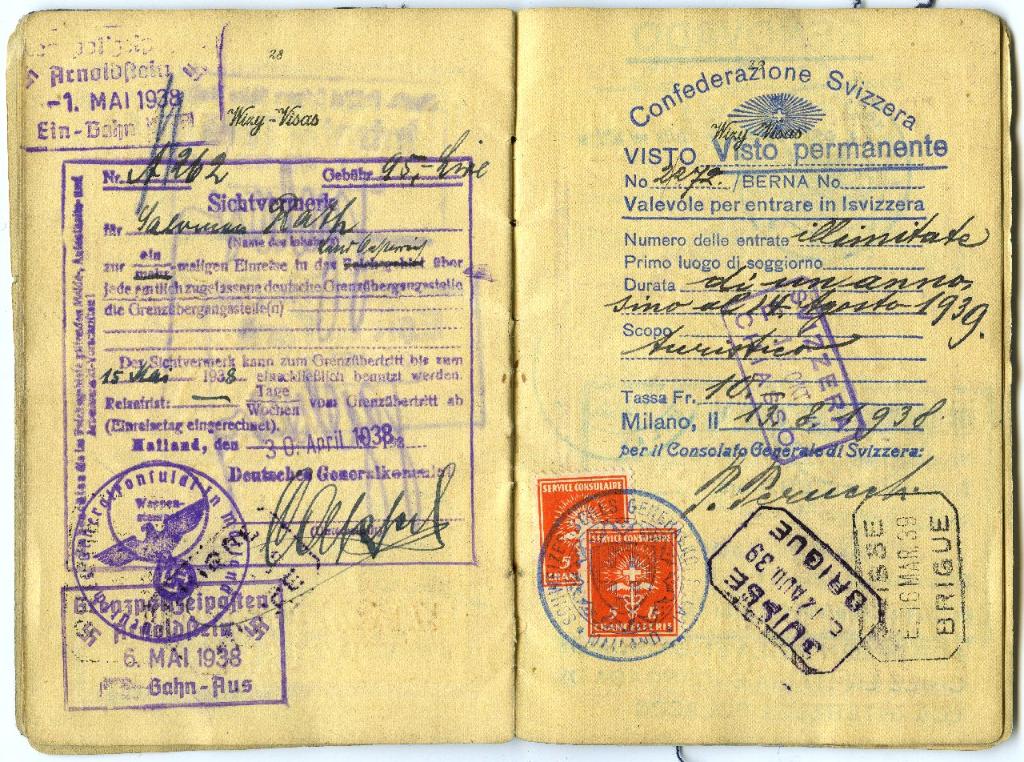 28
Arnoldstein
-1. MAI 1938
Ein-Bahn
Wizy-Visas
Nr. A 262 Gebühr 95,- Lire
Sichtvermerk
für Salomon Rath
(Name des Inhabers)
Land Österreich
zur ein-maligen Einreise in das Reichsgebiet über
mehr
jede amtlich zugelassene deutsche Grenzübergangsstelle
die Grenzübergangsstelle(n)
Der Sichtvermerk kann zum Grenzübertritt bis zum
15 Mai 1938 einschließlich benutzt werden.
Reisefrist: — Tage
Wochen vom Grenzübertritt ab
(Einreisetag eingerechnet).
Mailand, den 30. April 1938
Deutsches Generalkonsulat
Wappen-
Grenzpolizeiposten
Arnoldstein
6. MAI 1938
Bahn-Aus
29
Confederazione Svizzera
Wizy Visas
VISTO Visto permanente
No 2272. /BERNA No
Valevole per entrare in Isvizzera
Numero delle entrate illimitate
Primo luogo di soggiorno
Durata di un anno,
sino al 14. Agosto 1939.
Scopo
turistico
SVIZZERA
CHIASSO
Tassa Fr. 10.
Milano, Il 13.8.1938.
per il Consolato Generale di Svizzera:
SERVICE CONSULAIRE
5
FRANCS
SERVICE CONSULAIRE
5 fr.
CHANCELLERIES
SUISSE
E. 12 AOU. 39
BRIGUE
SUISSE
E. 16 MAR. 39
BRIGUE